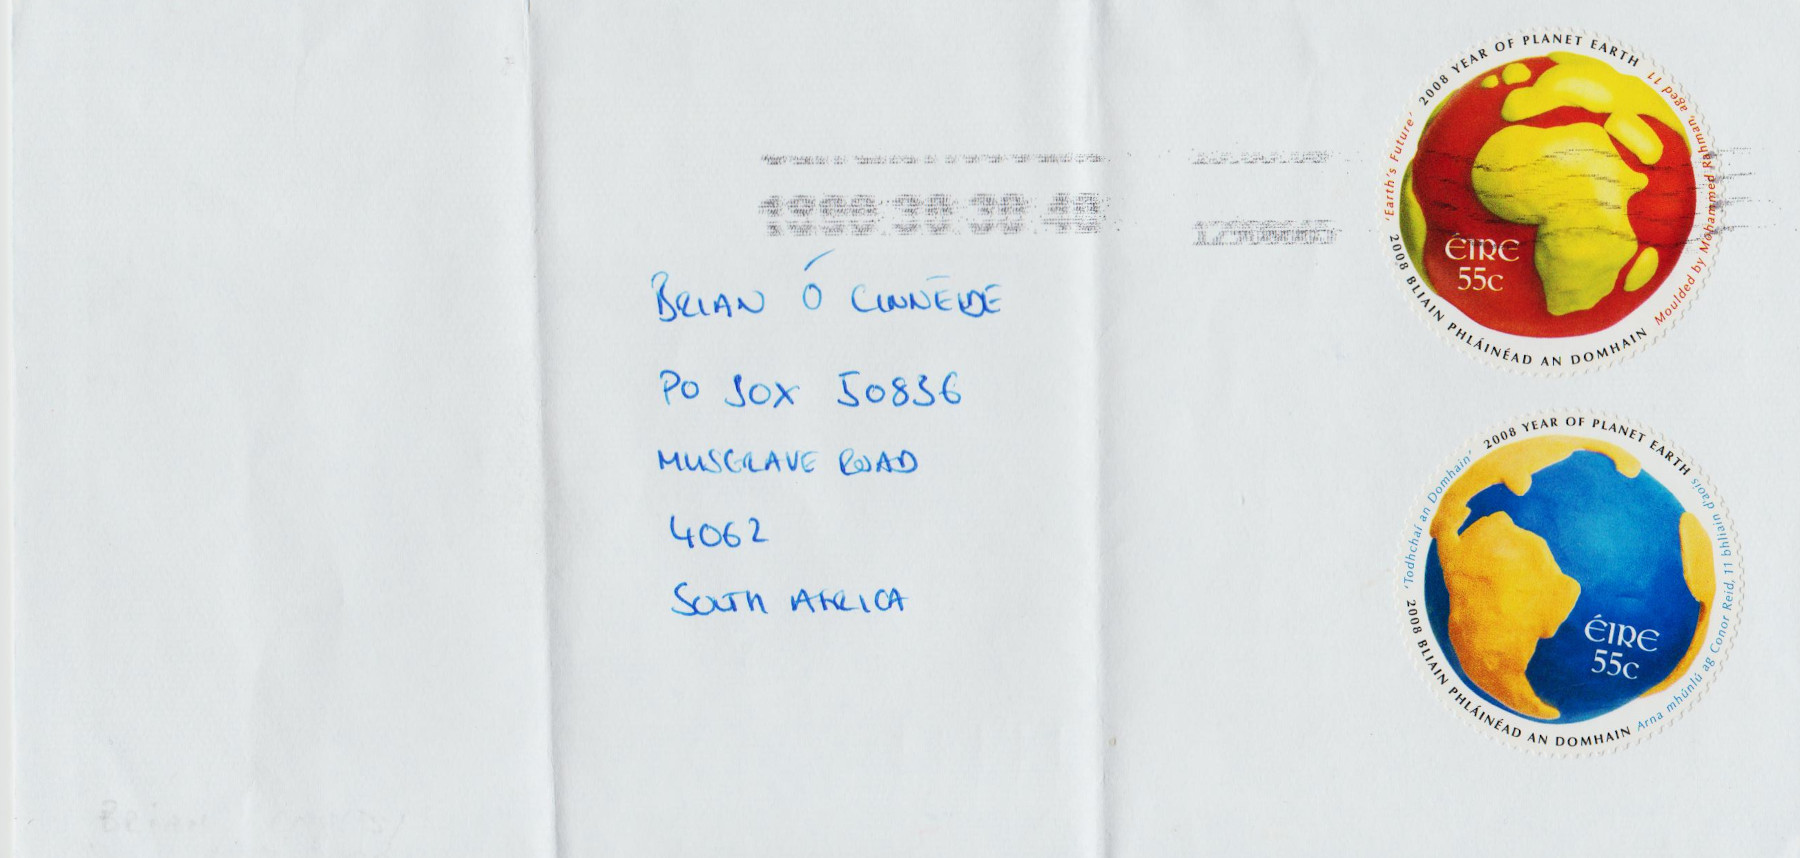 BRIAN Ó CINNÉIDE
PO BOX 50836
MUSGRAVE ROAD
4062
SOUTH AFRICA
2008 YEAR OF PLANET EARTH
'Earth's Future' Moulded by Mohammed Rahman, aged 11
ÉIRE
55c
2008 BLIAIN PHLÁINÉAD AN DOMHAIN
2008 YEAR OF PLANET EARTH
'Todhchaí an Domhain' Arna mhúnlú ag Conor Reid, 11 bhliain d'aois
ÉIRE
55c
2008 BLIAIN PHLÁINÉAD AN DOMHAIN